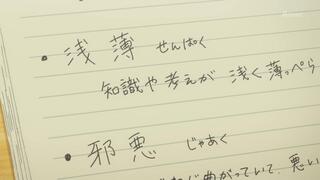 ・浅薄 せんぱく
知識や考えが 浅く薄っぺら
・邪悪 じゃあく
曲がっていて、悪い